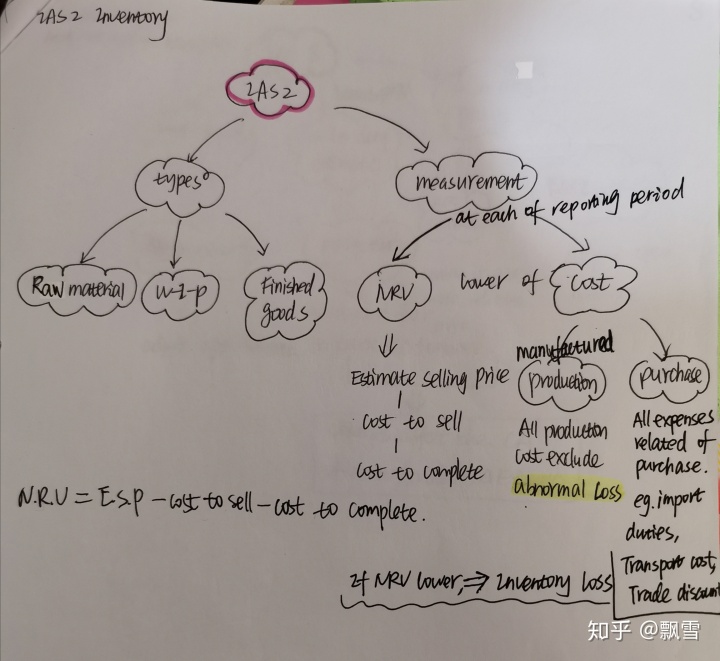 IAS2 Inventory
IAS2
types
measurement
at each of reporting period
Raw material
W-I-P
Finished
goods
NRV
lower of
Cost
Estimate selling price
cost to sell
cost to complete
manufactured
production
All production
cost exclude
abnormal Loss
purchase
All expenses
related of
purchase.
eg. import
duties,
Transport cost,
Trade discount
N.R.V = E.S.P - cost to sell - cost to complete.
If NRV lower, ⇒ Inventory Loss
知乎 @飘雪